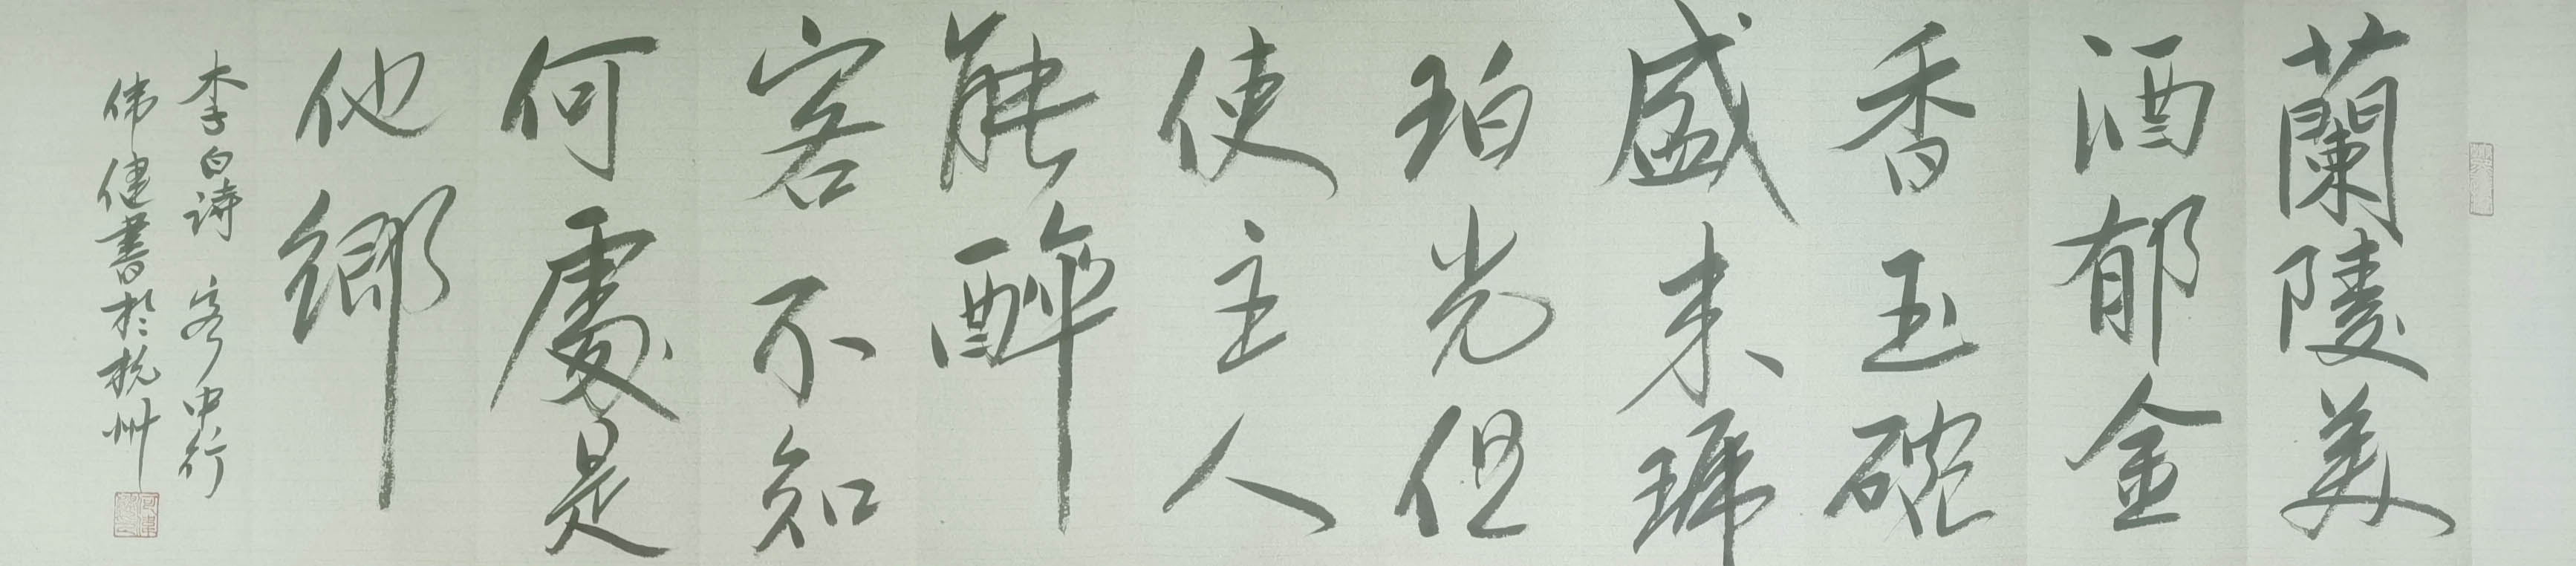 蘭陵美
酒郁金
香玉碗
盛来琥
珀光但
使主人
能醉
客不知
何處是
他鄉
李白诗 客中行
伟健書於杭州